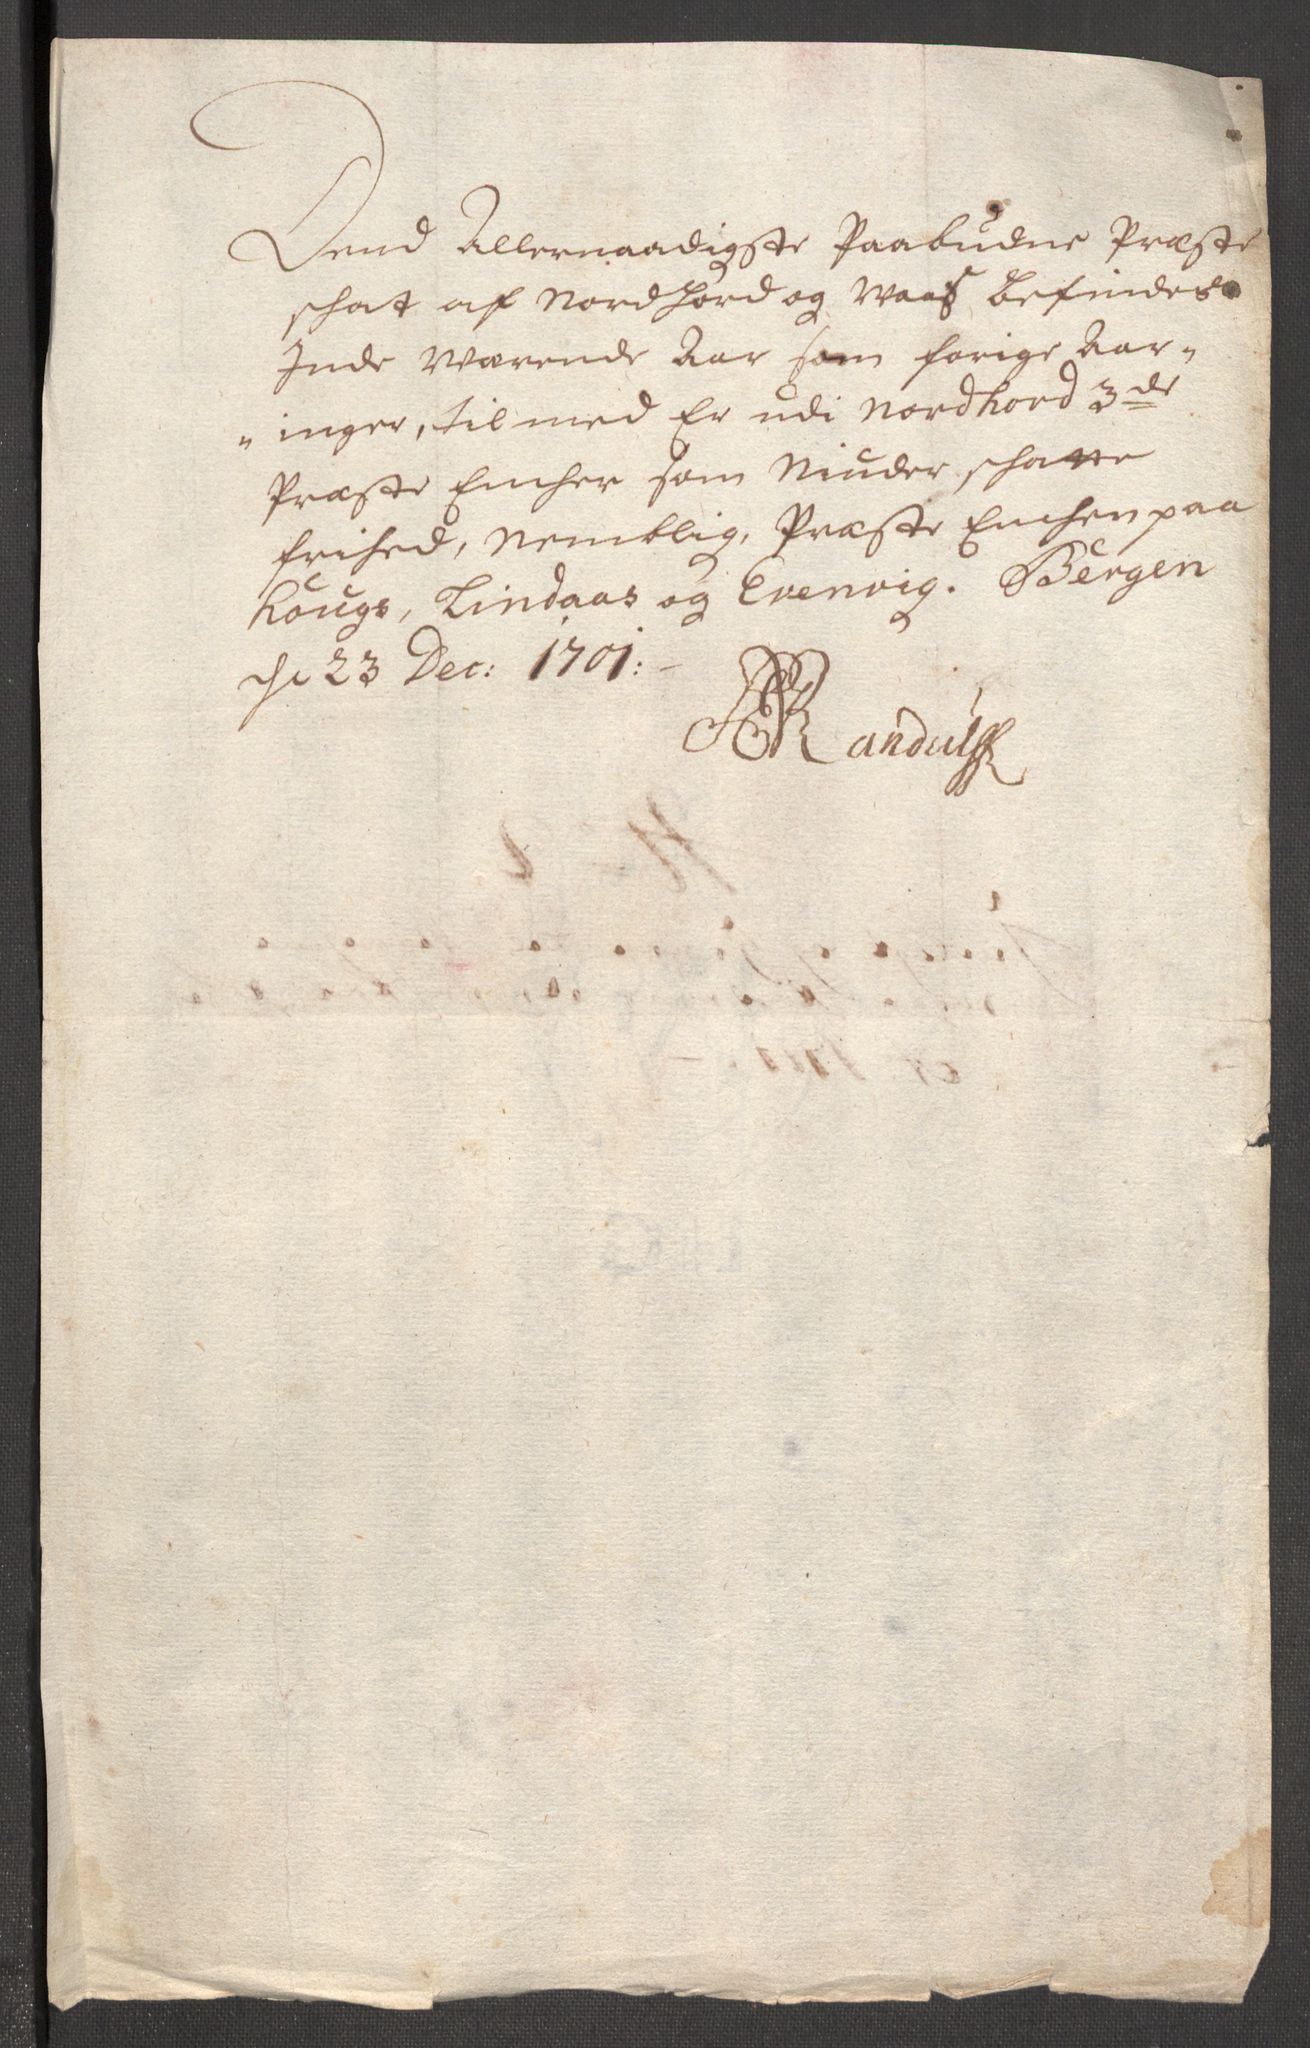 Dend Allernaadigste Paabudne Præste
schat af Nordhord og Waas befindes
Inde Værende Aar som forige Aar-
"inger, til med Er udi Nordhord 3de
Præste Encher som Niuder schatte
frihed, Nemblig, Præste Enchen paa
Hougs, Lindaas og Evenvig. Bergen
de 23 Dec: 1701:-
Randulff